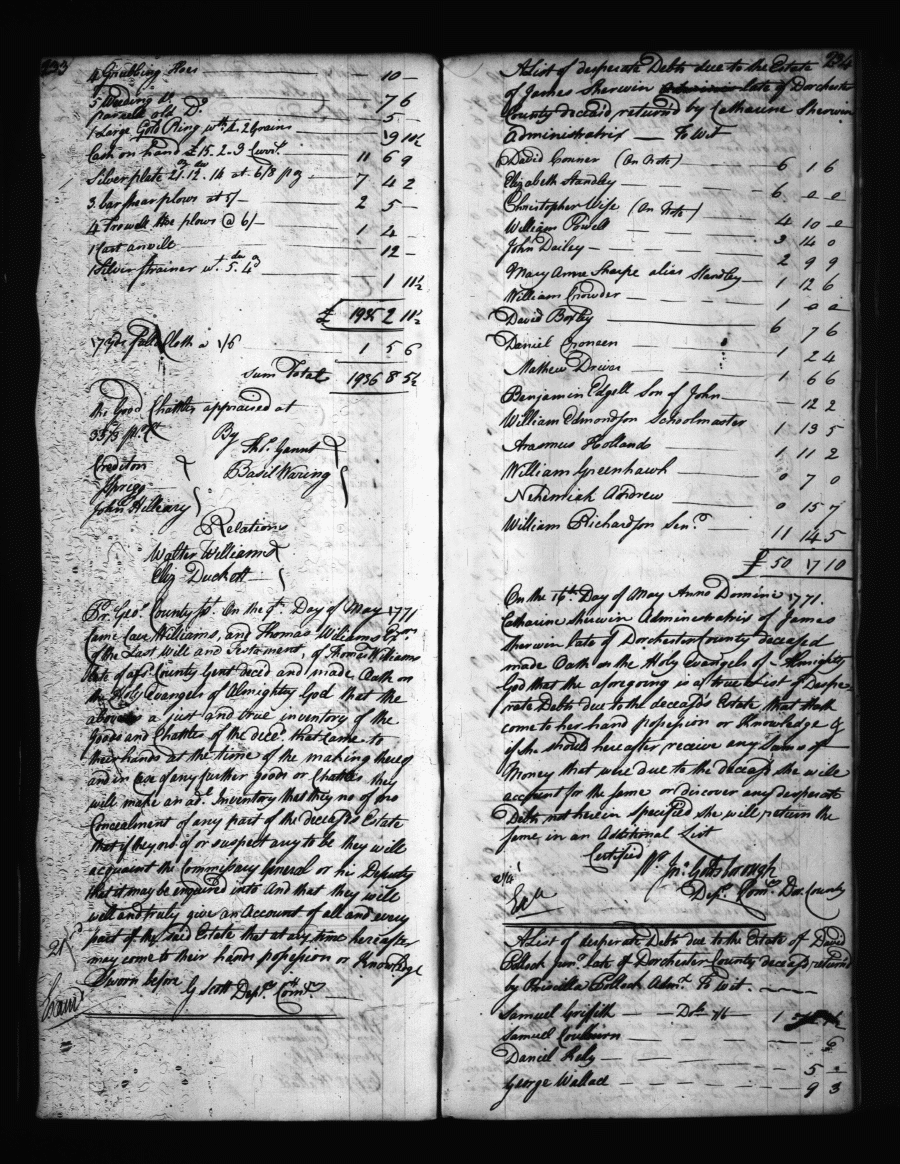 233
4 Grubbing Hoes — 10 —
5 Weeding Do. — 7 6
parcell old Do. — 5 —
1 Large Gold Ring wt. 4. 2 Grains — 19 10½
Cash on hand £15. 2. 3 Currt. 11 6 9
Silver plate 21. 12. 14 at 6/8 p 7 4 2
3 bar shear plows at 15/ 2 5 —
4 Trowell Hoe plows @ 6/ — 1 4 —
1 Cast anvill — 12 —
1 Silver strainer wt. 5. 4 — 1 11½
£ 1935 2 11½
17 yds fulld Cloth a 1/6 1 5 6
Sum Total 1936 8 5½
the Good Chattles appraised at
By
Thos. Gannt
Creditors
Basil Waring
John Hilleary
Relations
Walter Williams
Eliz Duckett
Pr. Geos. County st. On the 7th. Day of May 1771
Came Cave Williams, and Thomas Williams Exrs.
of the Last Will and Testament, of Thomas Williams
late of afs. County Gent decd and made Oath on
the Holy Evangels of Almighty God that the
above is a just and true inventory of the
goods and Chattles of the dece. that came to
their hands at the time of the making thereof
and in Case of any further goods or Chattles they
will make an ad. Inventory that they no of no
Concealment of any part of the deceas'ds Estate
that if they no of or suspect any to be they will
acquaint the Commissary General or his Deputy
that it may be enquired into And that they will
well and truly give an Account of all and every
part of the said Estate that at any time hereafter
may come to their hands possession or Knowledge
Sworn before
G Scott Depy. Comry.
234
A List of desperate Debts due to the Estate
of James Sherwin late of Dorchester
County deceas'd returned by Catharine Sherwin
Administratrix — To Wit
David Conner (On Note) — 6 1 6
Elizabeth Standley — 6 0 0
Christopher Wise (On Note)
William Powell — 4 10 0
John Dailey — 3 14 0
2 9 9
Mary Anne Sharpe alias Standley — 1 12 6
William Crowder — 1 0 0
David Boxley — 6 7 6
Daniel Croneen — 1 2 4
Mathew Driver — 1 6 6
Benjamin Edgell Son of John — 12 2
William Edmondson Schoolmaster 1 13 5
Arasmus Hollands 1 11 2
William Greenhawk — 0 7 0
Nehemiah Andrew — 0 15 7
William Richardson Senr. — 11 14 5
£ 50 17 10
On the Day of May Anno Domini 1771.
Catharine Sherwin Administratrix of James
Sherwin late of Dorchester County deceased
made Oath on the Holy Evangels of Almighty
God that the aforegoing is a true List of Despe-
rate Debts due to the deceas'ds Estate that Hath
come to her hand possession or Knowledge &
if she should hereafter receive any Sums of
Money that were due to the deceas'd she will
account for the same or discover any desperate
Debts not herein specified she will return the
same in an Additional List
Certified
Jno. Goldsborough
Depy. Comy. Dor. County
A List of desperate Debts due to the Estate of David
Pollock junr. late of Dorchester County deceas'd return'd
by Priscilla Pollock Admx. To Wit
Samuel Griffith — Do 7/6 — 1
Samuel Coulburn — 6
Daniel Kely — 5
George Wallace — 9 3